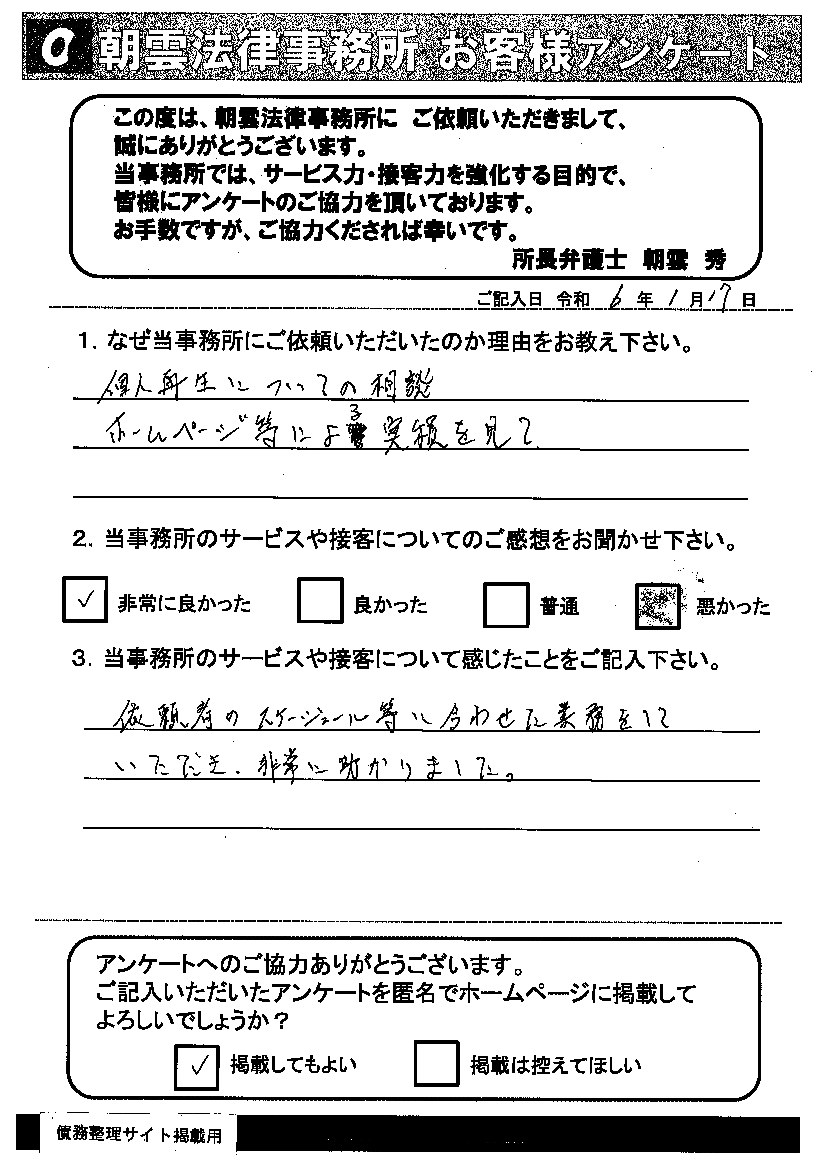 朝雲法律事務所 お客様アンケート
この度は、朝雲法律事務所に ご依頼いただきまして、
誠にありがとうございます。
当事務所では、サービス力・接客力を強化する目的で、
皆様にアンケートのご協力を頂いております。
お手数ですが、ご協力くだされば幸いです。
所長弁護士 朝雲 秀
ご記入日 令和 6 年 1 月 17 日
1. なぜ当事務所にご依頼いただいたのか理由をお教え下さい。
個人再生についての相談
ホームページ等による実績を見て
2. 当事務所のサービスや接客についてのご感想をお聞かせ下さい。
✓ 非常に良かった 良かった 普通 悪かった
3. 当事務所のサービスや接客について感じたことをご記入下さい。
依頼者のスケージュール等に合わせた業務をして
いただき、非常に助かりました。
アンケートへのご協力ありがとうございます。
ご記入いただいたアンケートを匿名でホームページに掲載して
よろしいでしょうか？
✓ 掲載してもよい 掲載は控えてほしい
債務整理サイト掲載用